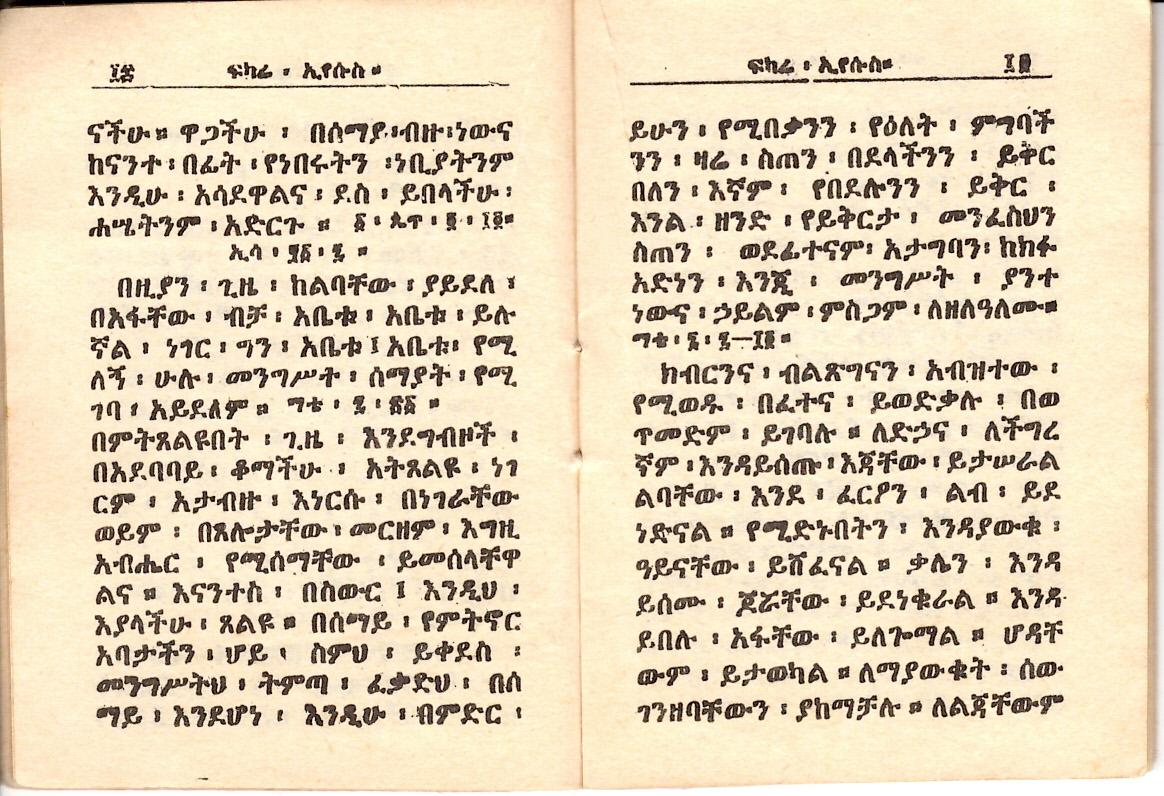 ፲፰ ፍካሬ ፡ ኢየሱስ ።
ናችሁ ። ዋጋችሁ ፡ በሰማያ ፡ ብዙ ፡ ነውና
ከናንተ ፡ በፊት ፡ የነበሩትን ፡ ነቢያትንም
እንዲሁ ፡ አሳደዋልና ፡ ደስ ፡ ይበላችሁ ፡
ሐሤትንም ፡ አድርጉ ።
ኢሳ ፡
በዚያን ፡ ጊዜ ፡ ከልባቸው ፡ ያይደለ ፡
በአፋቸው ፡ ብቻ ፡ አቤቱ ፡ አቤቱ ፡ ይሉ
ኛል ፡ ነገር ፡ ግን ፡ አቤቱ ፤ አቤቱ ፡ የሚ
ለኝ ፡ ሁሉ ፡ መንግሥት ፡ ሰማያት ፡ የሚ
ገባ ፡ አይደለም ። ማቴ ፡ ፯ ፡ ፳፩ ።
በምትጸልዩበት ፡ ጊዜ ፡ እንደግብዞች ፡
በአደባባይ ፡ ቆማችሁ ፡ አትጸልዩ ፡ ነገ
ርም ፡ አታብዙ ፡ እነርሱ ፡ በነገራቸው
ወይም ፡ በጸሎታቸው ፡ መርዘም ፡ እግዚ
አብሔር ፡ የሚሰማቸው ፡ ይመሰላቸዋ
ልና ። እናንተስ ፡ በስውር ፤ እንዲህ ፡
እያላችሁ ፡ ጸልዩ ። በሰማይ ፡ የምትኖር
አባታችን ፡ ሆይ ፡ ስምህ ፡ ይቀደስ ፡
መንግሥትህ ፡ ትምጣ ፡ ፈቃድህ ፡ በሰ
ማይ ፡ እንደሆነ ፡ እንዲሁ ፡ በምድር ፡
ፍካሬ ፡ ኢየሱስ ።
ይሁን ፡ የሚበቃንን ፡ የዕለት ፡ ምግባች
ንን ፡ ዛሬ ፡ ስጠን ፡ በደላችንን ፡ ይቅር
በለን ፡ እኛም ፡ የበደሉንን ፡ ይቅር ፡
እንል ፡ ዘንድ ፡ የይቅርታ ፡ መንፈስህን
ስጠን ፡ ወደፊተናም ፡ አታግባን ፡ ከክፉ
አድነን ፡ እንጂ ፡ መንግሥት ፡ ያንተ
ነውና ፡ ኃይልም ፡ ምስጋም ፡ ለዘለዓለሙ ።
ማቴ ፡ ፮ ፡
ክብርንና ፡ ብልጽግናን ፡ አብዝተው ፡
የሚወዱ ፡ በፈተና ፡ ይወድቃሉ ፡ በወ
ጥመድም ፡ ይገባሉ ። ለድኃና ፡ ለችግረ
ኛም ፡ እንዳይሰጡ ፡ እጃቸው ፡ ይታሠራል
ልባቸው ፡ እንደ ፡ ፈርዖን ፡ ልብ ፡ ይደ
ነድናል ። የሚድኑበትን ፡ እንዳያውቁ ፡
ዓይናቸው ፡ ይሸፈናል ። ቃሌን ፡ እንዳ
ይሰሙ ፡ ጆሯቸው ፡ ይደነቁራል ። እንዳ
ይበሉ ፡ አፋቸው ፡ ይለጐማል ። ሆዳቸ
ውም ፡ ይታወካል ። ለማያውቁት ፡ ሰው
ገንዘባቸውን ፡ ያከማቻሉ ። ለልጃቸውም